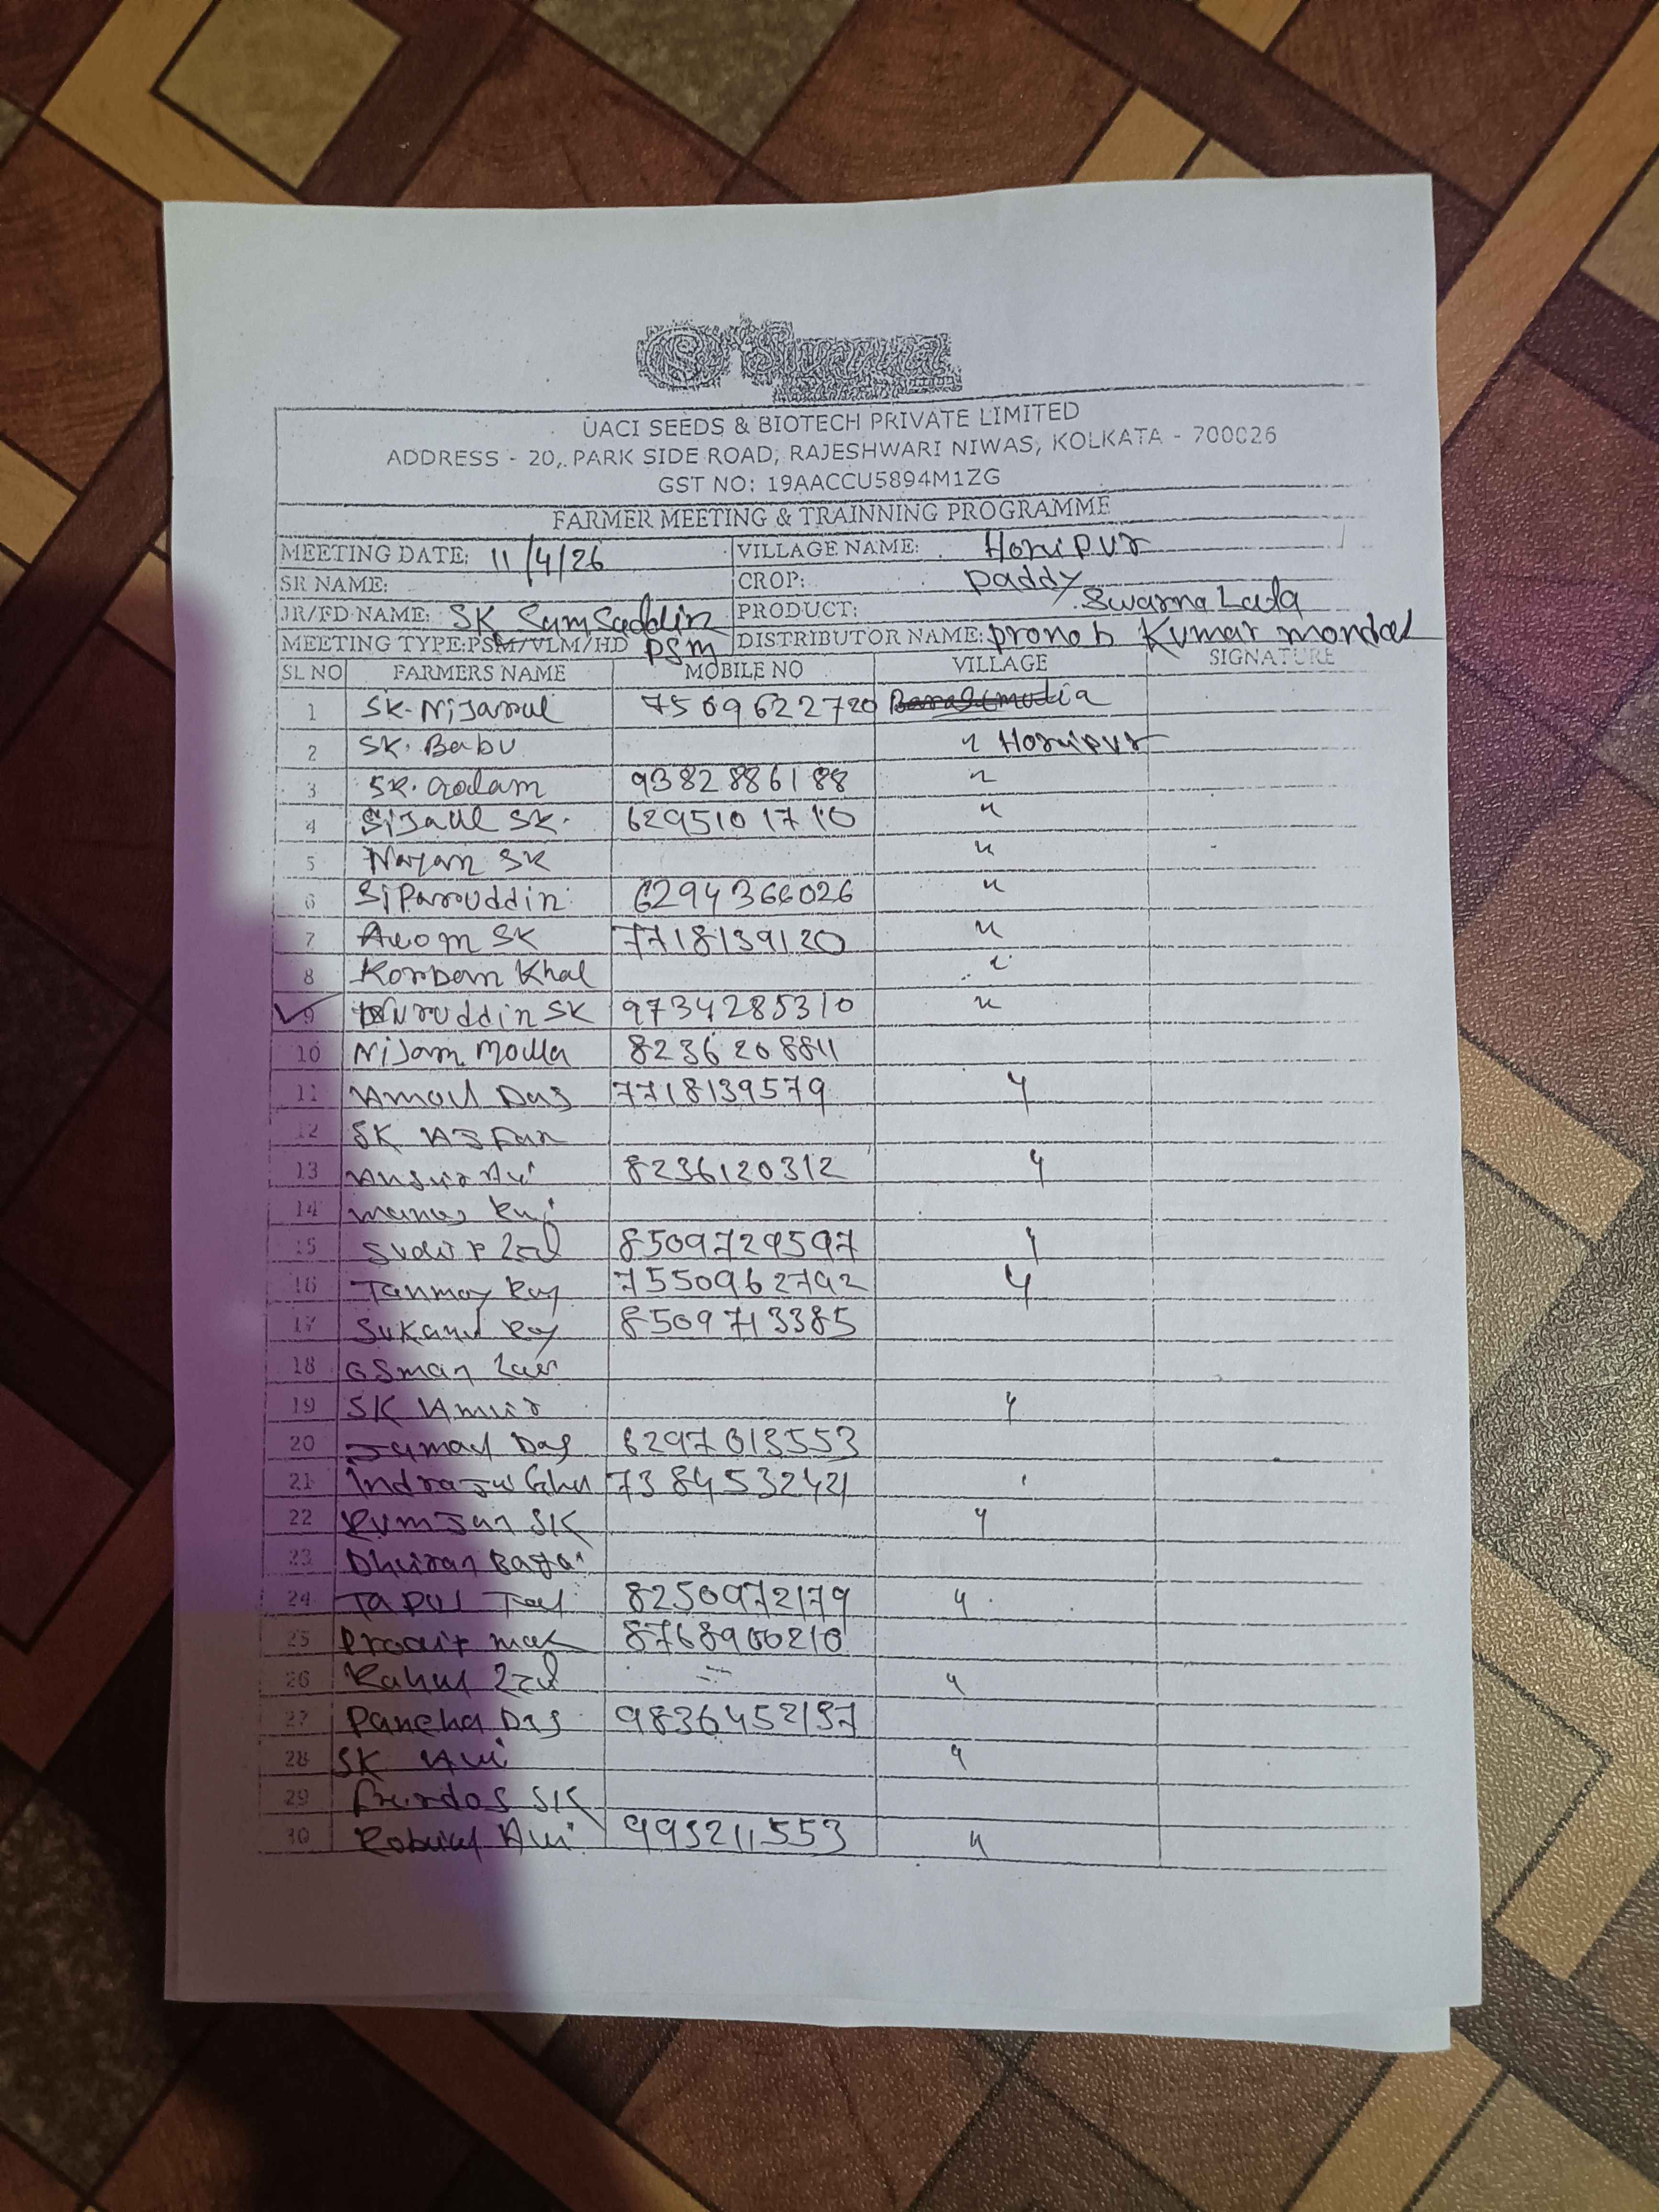 UACI SEEDS & BIOTECH PRIVATE LIMITED
ADDRESS - 20, PARK SIDE ROAD, RAJESHWARI NIWAS, KOLKATA - 700026
GST NO: 19AACCU5894M1ZG
FARMER MEETING & TRAINNING PROGRAMME
MEETING DATE: 11/4/26 VILLAGE NAME: Horipur
SR NAME: CROP: paddy
JR/FD NAME: SK Samsaddin PRODUCT: Swarna Lata
MEETING TYPE:PSM/VLM/HD PSM DISTRIBUTOR NAME: pronob Kumar mondal
SL NO FARMERS NAME MOBILE NO VILLAGE SIGNATURE
1 SK. Nijarul 7509622720
2 SK. Babu " Horipur
3 SK. Golam 9382886188 "
4 Sijaul SK. 6295101710 "
5 Nayan SK "
6 Siparuddin 6294366026 "
7 SK 7718139120 "
8 Korban Khal "
9 Nuruddin SK 9734285310 "
10 Nijam Molla 8236208811
11 Amal Das 7718139579 "
12 SK
13 8236120312 "
14 Manas
15 Sudip 8509729597 "
16 Tanmay Roy 7550962792 "
17 Sukanta Roy 8509713385
18 Osman
19 SK Amir "
20 Das 6297013553
21 7384532421
22 Rumjan SK "
23
24 8250972179 "
25 8768900210
26 Rahul "
27 Pancha Das 9836452137
28 SK Ali "
29 SK
30 Robiul Ali 993211553 "